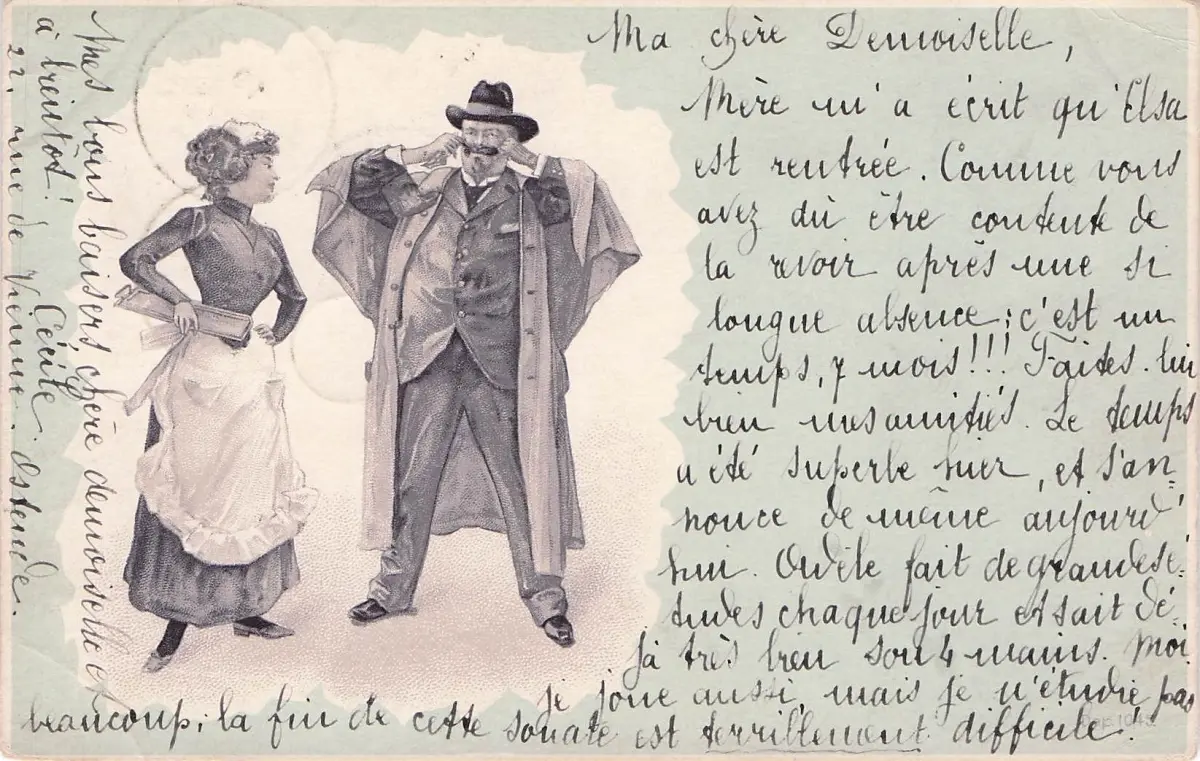 Ma chère Demoiselle,
Mère m'a écrit qu'Elsa
est rentrée. Comme vous
avez dû être contente de
la revoir après une si
longue absence; c'est un
temps, 7 mois!!! Faites-lui
bien mes amitiés. Le temps
a été superbe hier, et s'an-
nonce de même aujourd'
hui. Odile fait de grandes é-
tudes chaque jour et sait dé-
jà très bien son 4 mains. Moi
je joue aussi, mais je n'étudie pas
beaucoup; la fin de cette sonate est terriblement difficile!
Mes bons baisers, chère demoiselle et
à bientôt! Cécile.
22, rue de Vienne. Ostende.